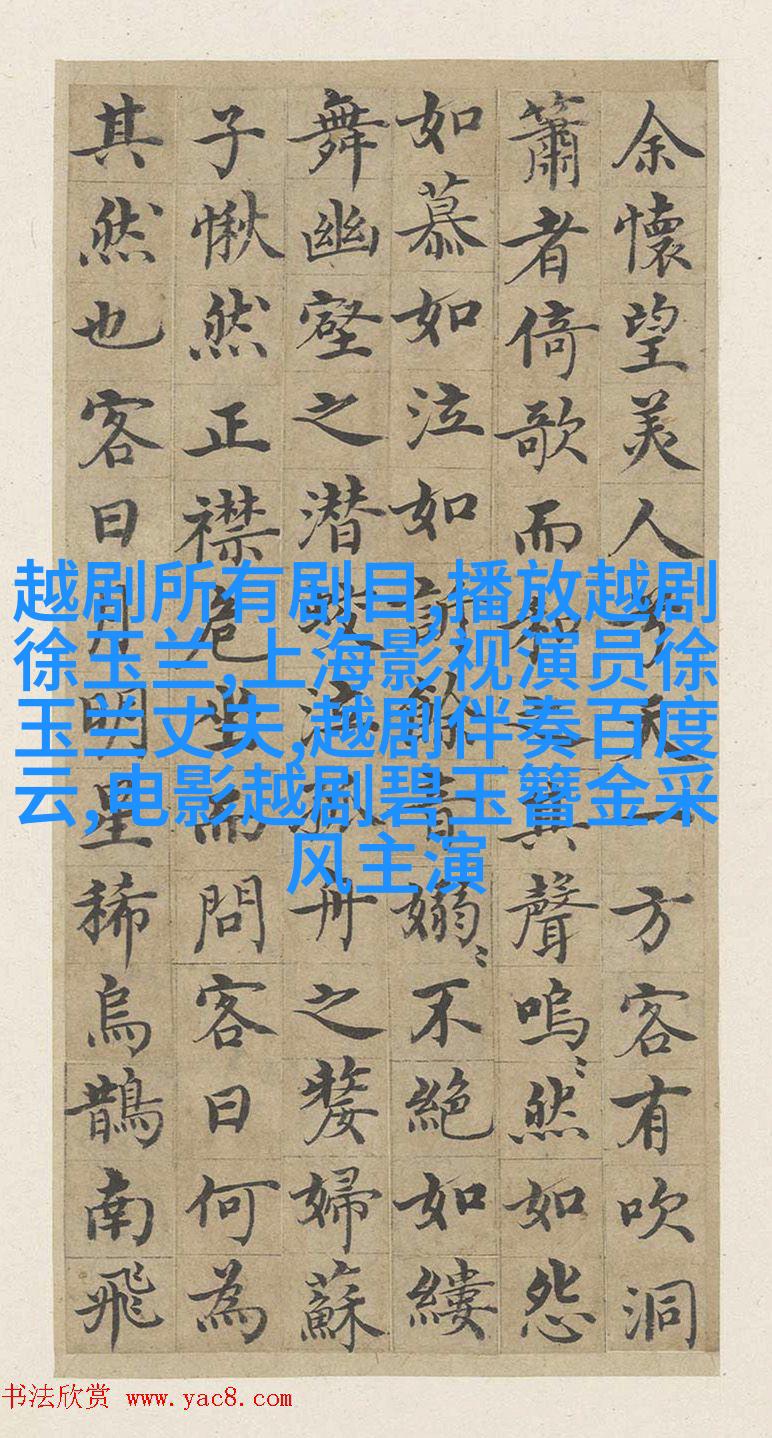 余懷望美人兮天一方客有吹洞
簫者倚歌而和之其聲嗚〻然如怨
如慕如泣如訴餘音嫋〻不絕如縷
舞幽壑之潜蛟泣孤舟之嫠婦蘇
子愀然正襟危坐而問客曰何為
其然也客曰月明星稀烏鵲南飛
越剧所有剧目,播放越剧
徐玉兰,上海影视演员徐
玉兰丈夫,越剧伴奏百度
云,电影越剧碧玉簪金采
风主演
书法欣赏 www.yac8.com